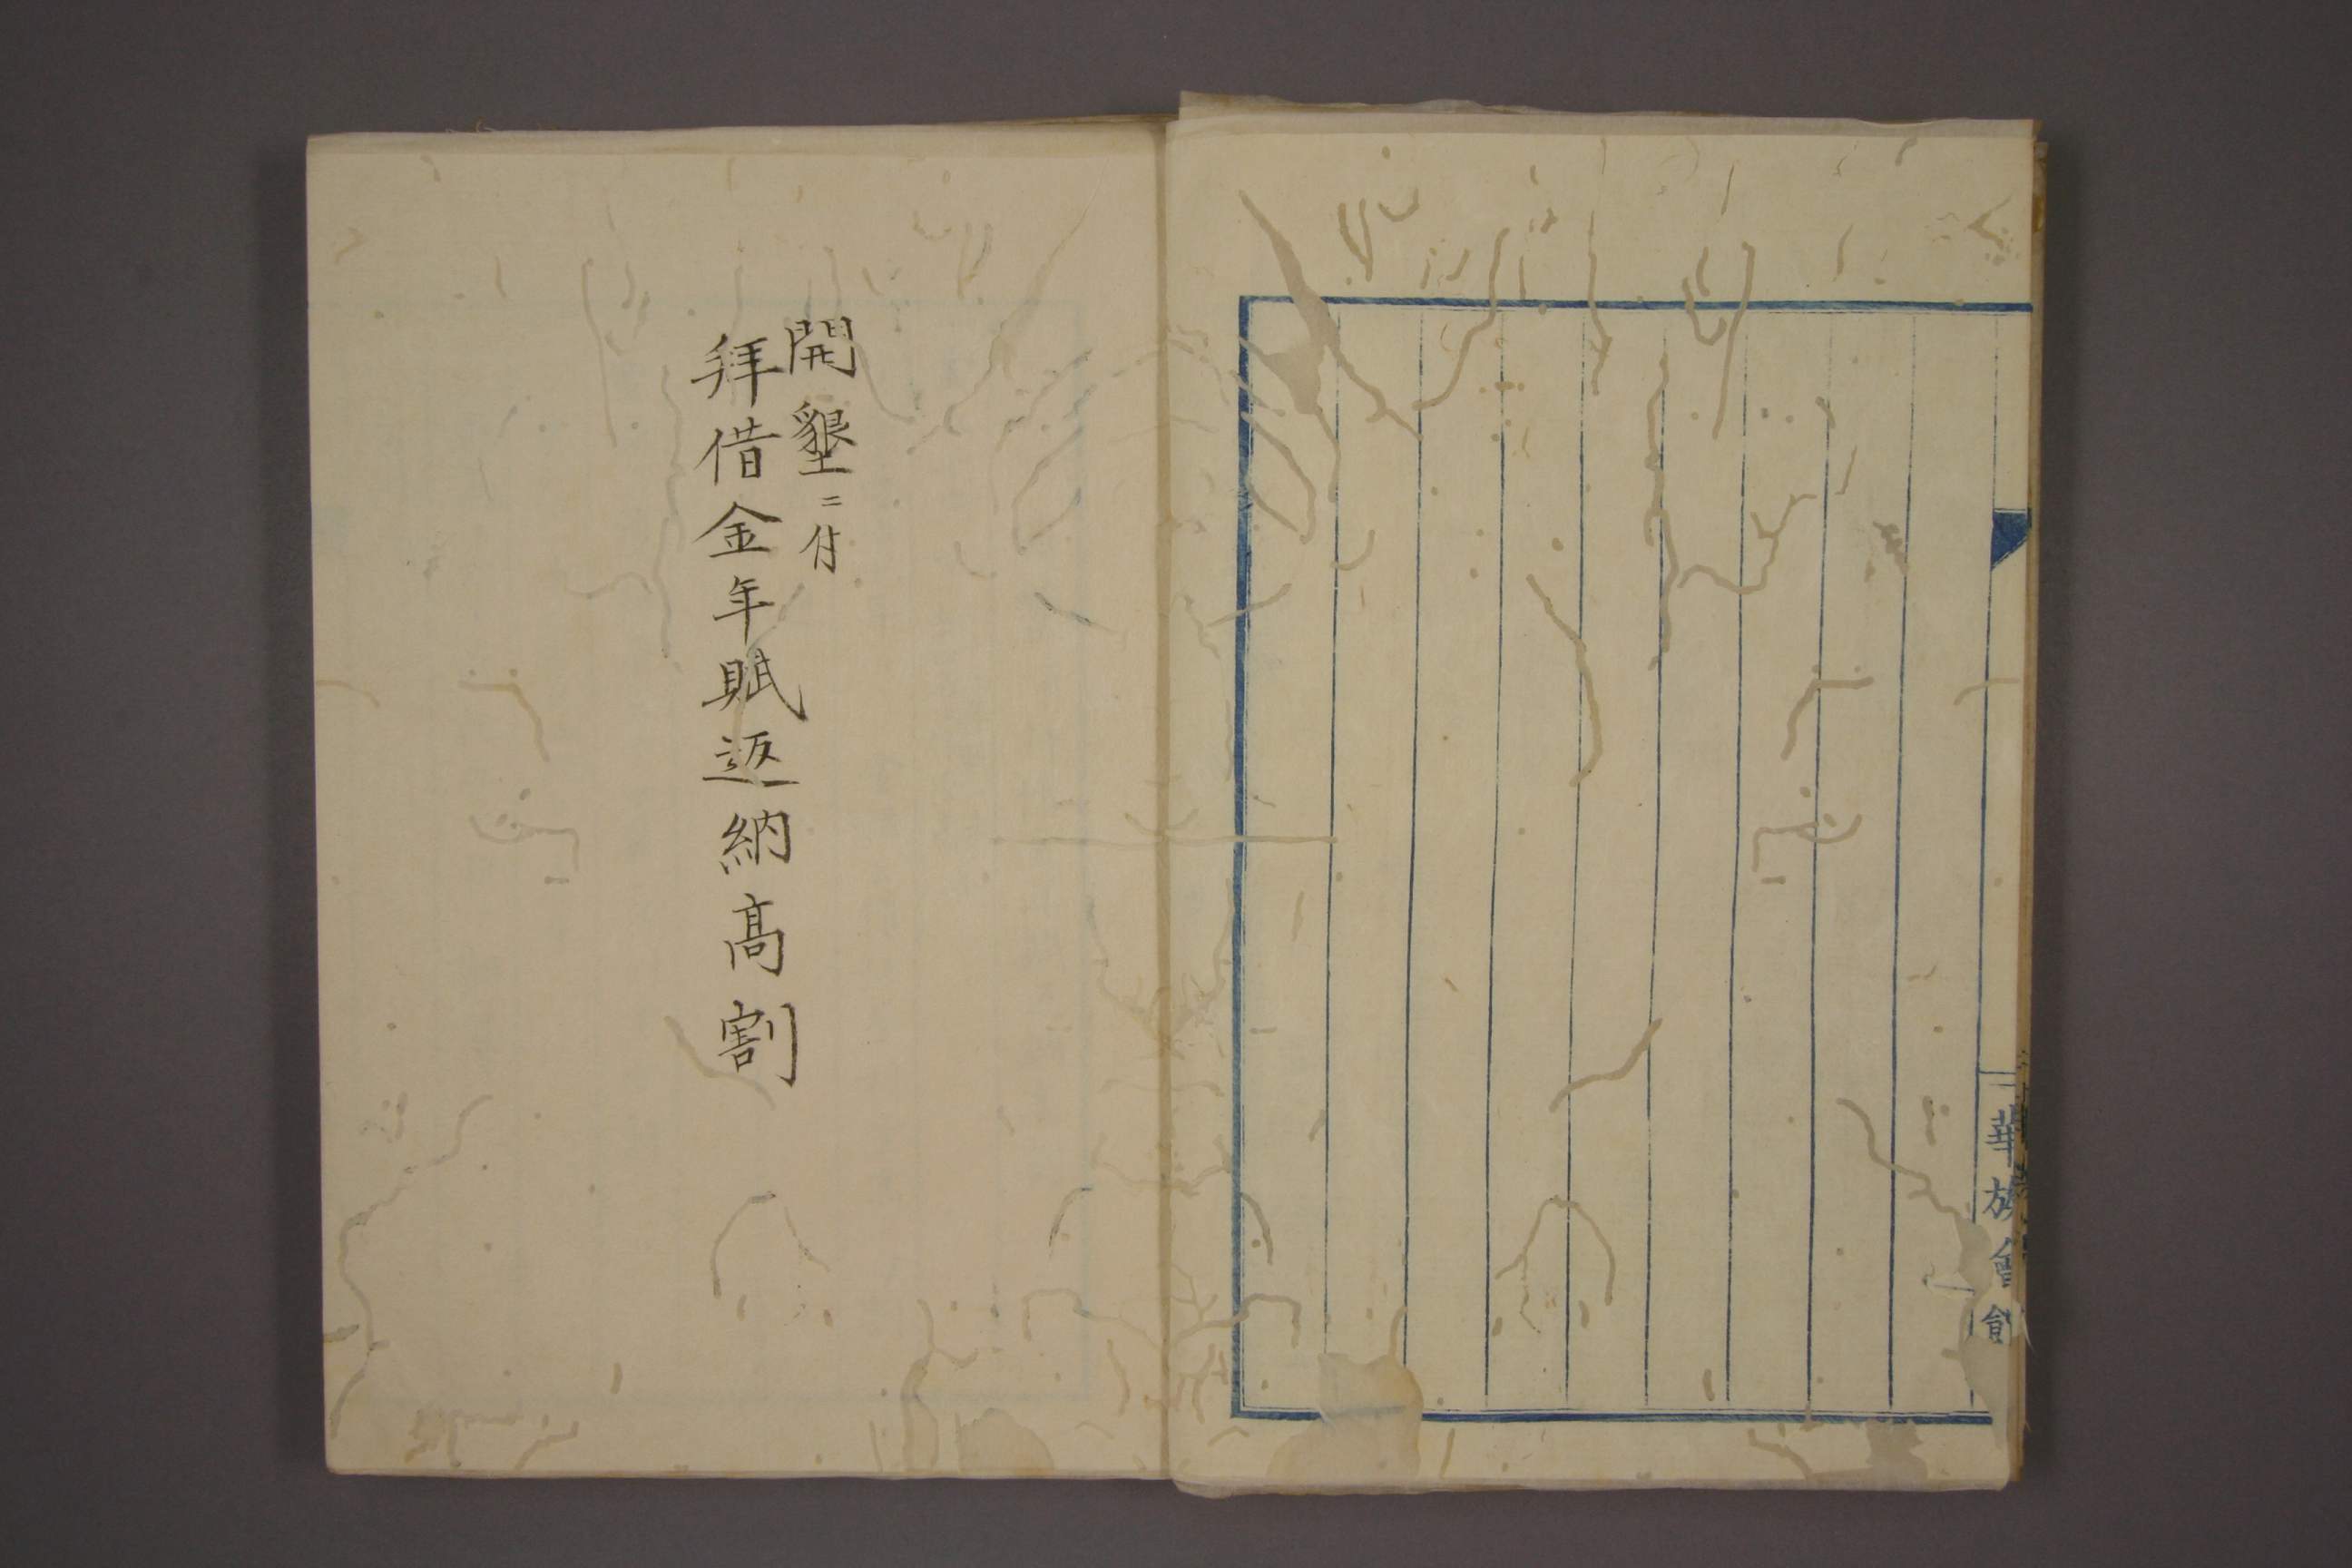 華族會館
開墾ニ付
拜借金年賦返納高割